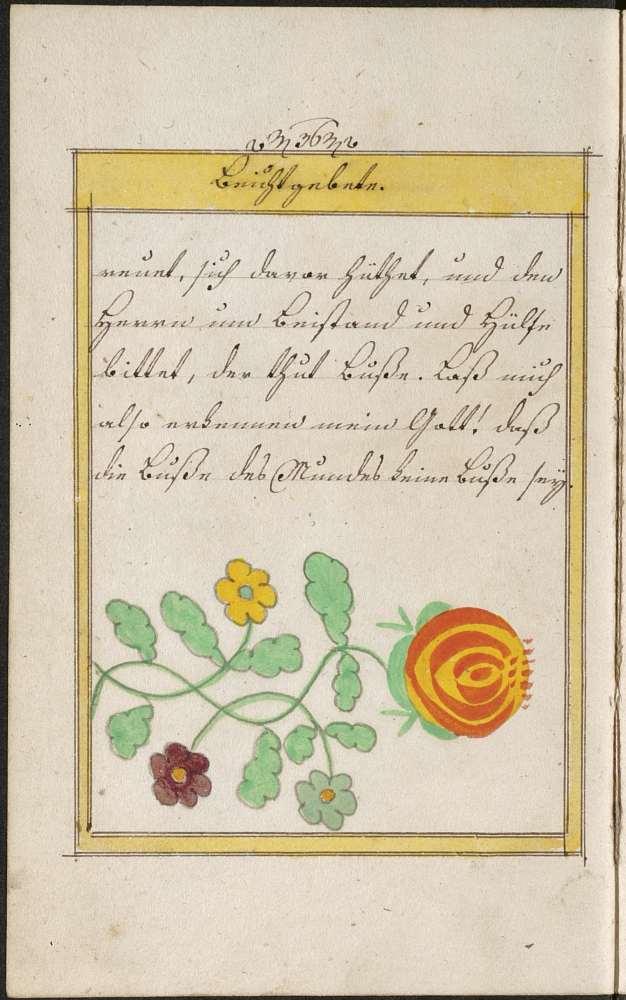 36
Beichtgebete.
reuet, sich davor hüthet, und den
Herrn um Beistand und Hülfe
bittet, der thut Buße. Laß mich
also erkennen mein Gott! daß
die Buße des Mundes keine Buße sey.